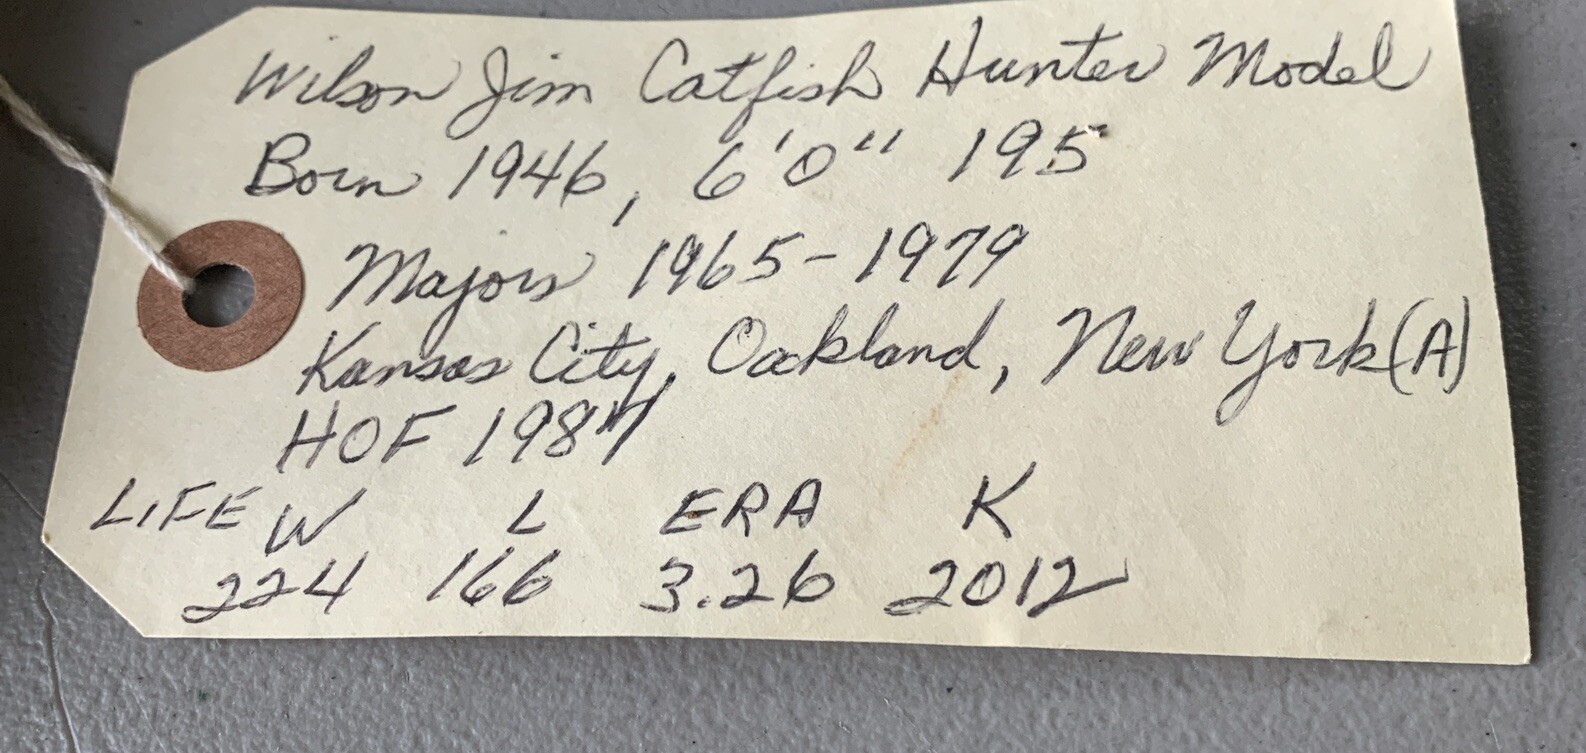 Wilson Jim Catfish Hunter Model
Born 1946, 6'0" 195
Majors 1965-1979
Kansas City, Oakland, New York (A)
HOF 1987
LIFE W L ERA K
224 166 3.26 2012